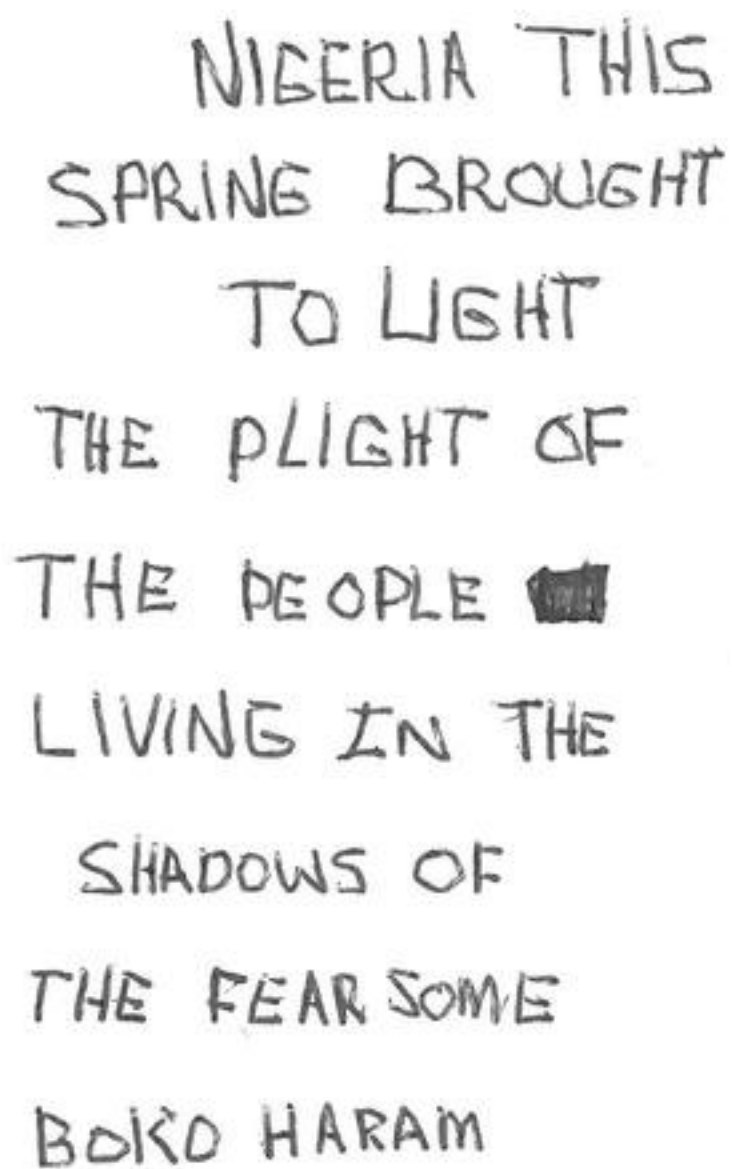 NIGERIA THIS
SPRING BROUGHT
TO LIGHT
THE PLIGHT OF
THE PEOPLE
LIVING IN THE
SHADOWS OF
THE FEARSOME
BOKO HARAM